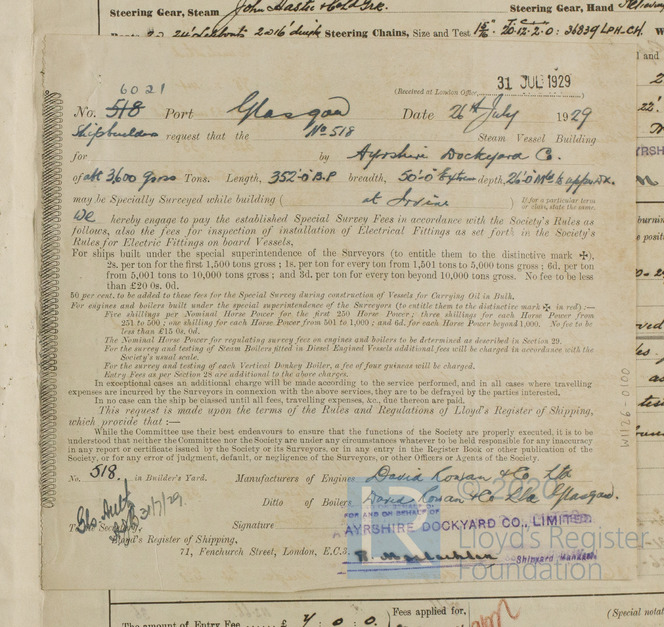 Steering Gear, Steam John Hastie & Co Ld Gre. Steering Gear, Hand
Steering Chains, Size and Test 20.12.2.0: 36839 LPH.CH.
6021
(Received at London Office, 31 JUL 1929 )
No. 518 Port Glasgow Date 26th July 1929
Shipbuilders request that the No 518 Steam Vessel Building
for by Ayrshire Dockyard Co.
of abt 3,600 gross Tons. Length, 352'.0 B.P breadth, 50'.0 Extreme depth, 26'.0
may be Specially Surveyed while building ( at Irvine ) If for a particular term or class, state the same.
We hereby engage to pay the established Special Survey Fees in accordance with the Society's Rules as
follows, also the fees for inspection of installation of Electrical Fittings as set forth in the Society's
Rules for Electric Fittings on board Vessels,
For ships built under the special superintendence of the Surveyors (to entitle them to the distinctive mark ✠),
2s. per ton for the first 1,500 tons gross; 1s. per ton for every ton from 1,501 tons to 5,000 tons gross; 6d. per ton
from 5,001 tons to 10,000 tons gross; and 3d. per ton for every ton beyond 10,000 tons gross. No fee to be less
than £20 0s. 0d.
50 per cent. to be added to these fees for the Special Survey during construction of Vessels for Carrying Oil in Bulk.
For engines and boilers built under the special superintendence of the Surveyors (to entitle them to the distinctive mark ✠ in red):—
Five shillings per Nominal Horse Power for the first 250 Horse Power; three shillings for each Horse Power from
251 to 500; one shilling for each Horse Power from 501 to 1,000; and 6d. for each Horse Power beyond 1,000. No fee to be
less than £15 0s. 0d.
The Nominal Horse Power for regulating survey fees on engines and boilers to be determined as described in Section 29.
For the survey and testing of Steam Boilers fitted in Diesel Engined Vessels additional fees will be charged in accordance with the
Society's usual scale.
For the survey and testing of each Vertical Donkey Boiler, a fee of four guineas will be charged.
Entry Fees as per Section 28 are additional to the above charges.
In exceptional cases an additional charge will be made according to the service performed, and in all cases where travelling
expenses are incurred by the Surveyors in connexion with the above services, they are to be defrayed by the parties interested.
In no case can the ship be classed until all fees, travelling expenses, &c., due thereon are paid.
This request is made upon the terms of the Rules and Regulations of Lloyd's Register of Shipping,
which provide that:—
While the Committee use their best endeavours to ensure that the functions of the Society are properly executed, it is to be
understood that neither the Committee nor the Society are under any circumstances whatever to be held responsible for any inaccuracy
in any report or certificate issued by the Society or its Surveyors, or in any entry in the Register Book or other publication of the
Society, or for any error of judgment, default, or negligence of the Surveyors, or other Officers or Agents of the Society.
No. 518 in Builder's Yard. Manufacturers of Engines David Rowan & Co Ltd
Ditto of Boilers David Rowan & Co Ltd Glasgow.
31/7/29
FOR AND ON BEHALF OF
AYRSHIRE DOCKYARD CO., LIMITED
Signature
Lloyd's Register of Shipping,
71, Fenchurch Street, London, E.C.3.
R. Maclachlan Shipyard Manager
W1126-0100
© 2020
Lloyd's Register
Foundation
The amount of Entry Fee £ 7 : 0 : 0. Fees applied for, (Special notat